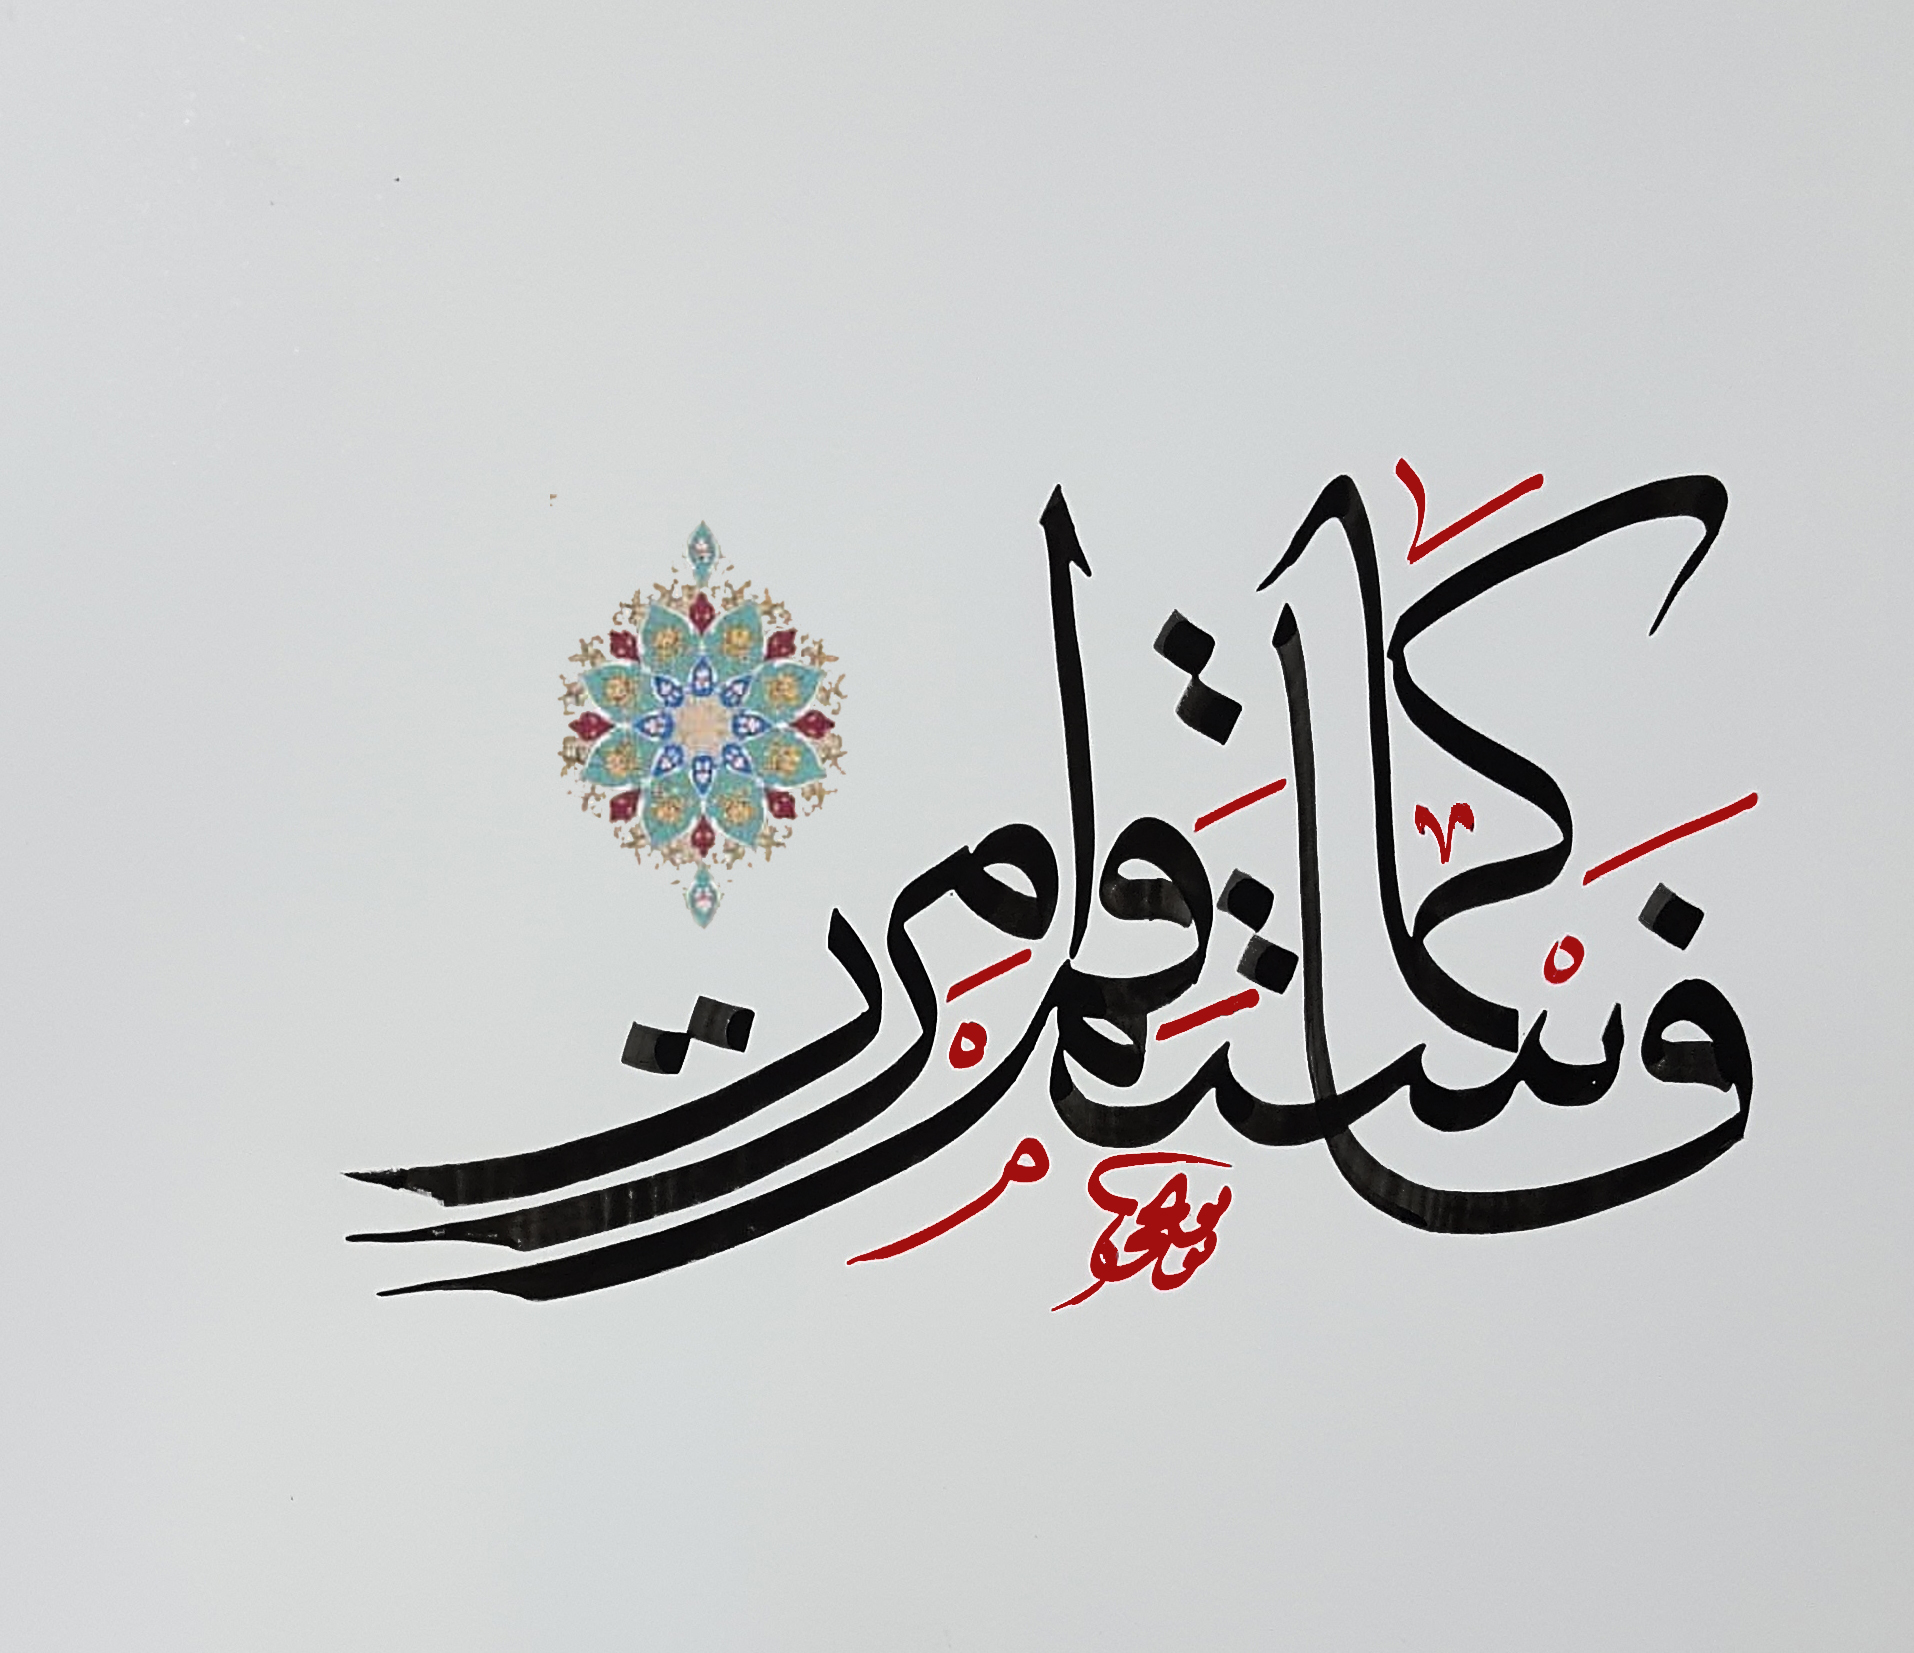 فاستقم كما امرت